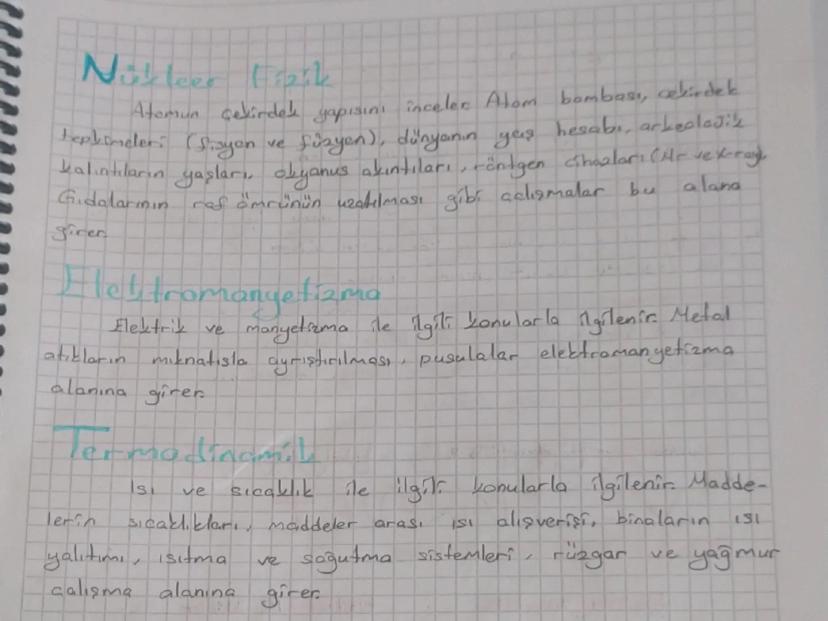 Nükleer Fizik
Atomun çekirdek yapısını inceler. Atom bombası, çekirdek
tepkimeleri (fizyon ve füzyon), dünyanın yaş hesabı, arkeolojik
kalıntıların yaşları, okyanus akıntıları, röntgen cihazları (Mr ve x-ray)
Gıdalarının raf ömrünün uzatılması gibi çalışmalar bu alana
girer.
Elektromanyetizma
Elektrik ve manyetizma ile ilgili konularla ilgilenir. Metal
atıkların mıknatısla ayrıştırılması, pusulalar elektromanyetizma
alanına girer.
Termodinamik
Isı ve sıcaklık ile ilgili konularla ilgilenir. Madde-
lerin sıcaklıkları, maddeler arası ısı alışverişi, binaların ısı
yalıtımı, ısıtma ve soğutma sistemleri, rüzgar ve yağmur
çalışma alanına girer.